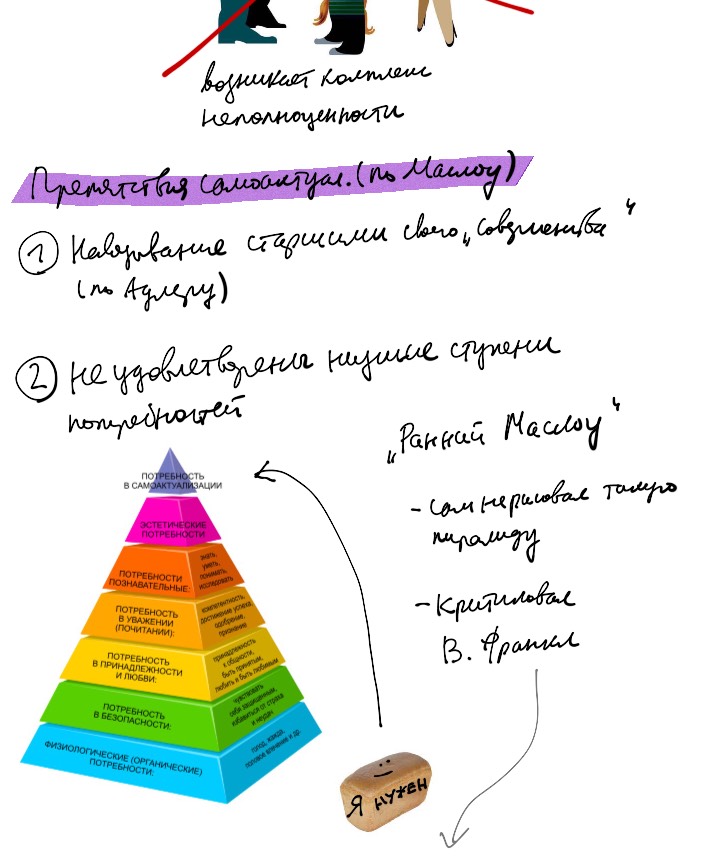 возникает комплекс
неполноценности
Препятствия самоактуал. (по Маслоу)
① Навязывание старшими своего „совершенства"
(по Адлеру)
② Не удовлетворены низшие ступени
потребностей
„Ранний Маслоу"
- Сам не рисовал такую
пирамиду
- Критиковал
В. Франкл
ПОТРЕБНОСТЬ
В САМОАКТУАЛИЗАЦИИ
ЭСТЕТИЧЕСКИЕ
ПОТРЕБНОСТИ
ПОТРЕБНОСТИ
ПОЗНАВАТЕЛЬНЫЕ:
знать,
уметь,
понимать,
исследовать
ПОТРЕБНОСТЬ
В УВАЖЕНИИ
(ПОЧИТАНИИ):
компетентность,
достижение успеха,
одобрение,
признание
ПОТРЕБНОСТЬ
В ПРИНАДЛЕЖНОСТИ
И ЛЮБВИ:
принадлежность
к общности,
быть принятым,
любить и быть любимым
ПОТРЕБНОСТЬ
В БЕЗОПАСНОСТИ:
чувствовать
себя защищенным,
избавиться от страха
и неудач
ФИЗИОЛОГИЧЕСКИЕ (ОРГАНИЧЕСКИЕ)
ПОТРЕБНОСТИ:
голод, жажда,
половое влечение и др.
Я НУЖЕН